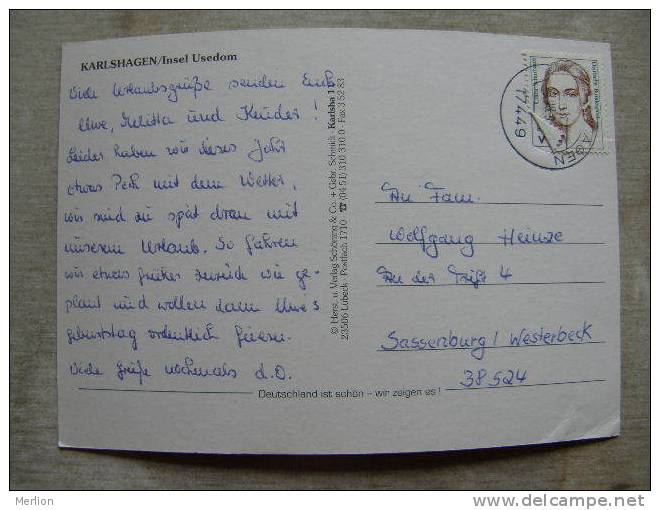 KARLSHAGEN/Insel Usedom
Viele Urlaubsgrüße senden Euch
Uwe, Melitta und Kinder!
Leider haben wir dieses Jahr
etwas Pech mit dem Wetter,
wir sind zu spät dran mit
unserem Urlaub. So fahren
wir etwas früher zurück wie ge-
plant und wollen dann Uwe's
geburtstag ordentlich feiern.
Viele grüße nochmals d.O.
© Herst. u. Verlag Schöning & Co. + Gebr. Schmidt Karlsha 1
23506 Lübeck · Postfach 1710 · ☎ (04 51) 310 310 0 · Fax 3 52 83
17449
An Fam.
Wolfgang Heinze
An der Trift 4
Sassenburg/Westerbeck
38524
Deutschland ist schön – wir zeigen es!
Merlion
www.delcampe.net